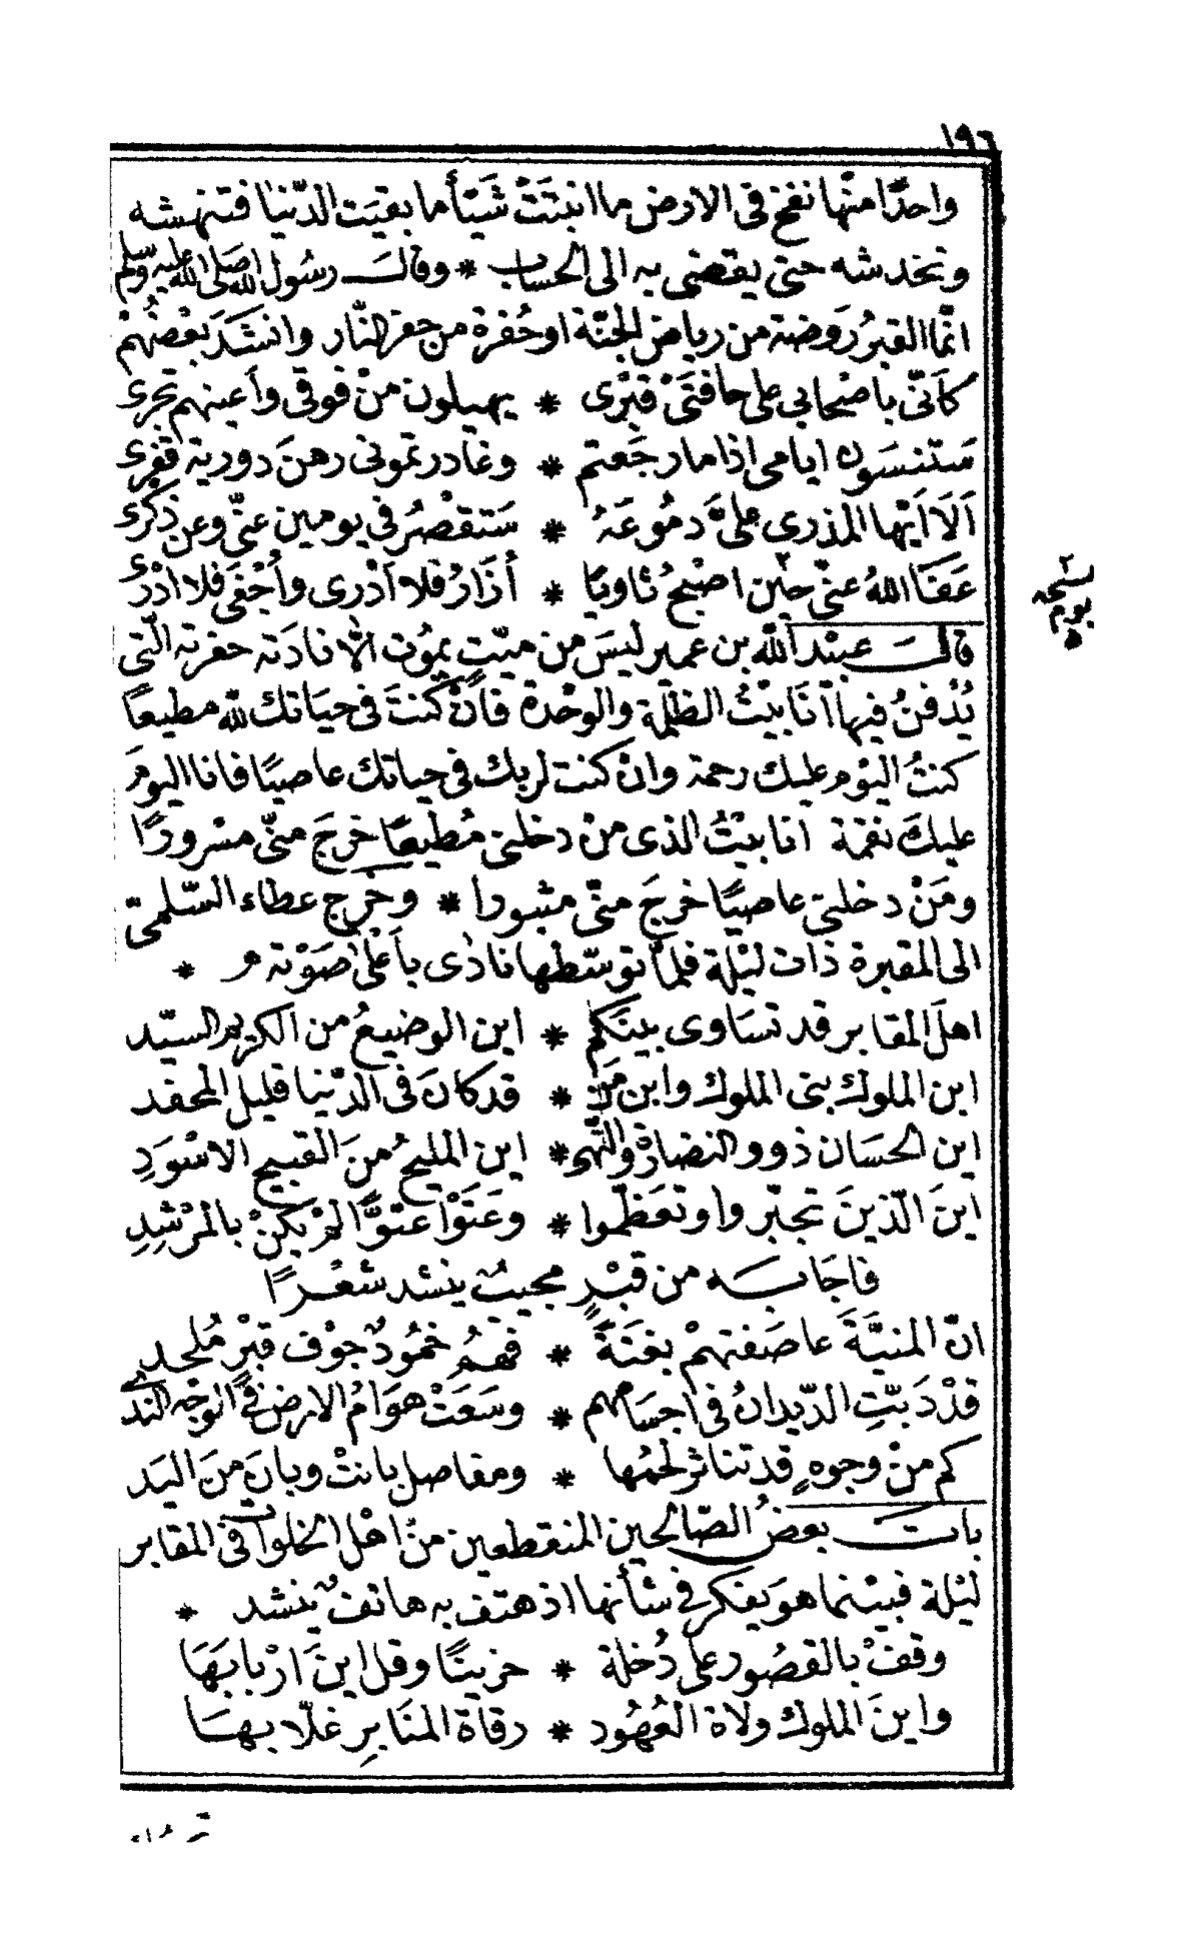 ١٩٦
واحدًا منها نفخ فى الارض ما انبتَتْ شَيئأ ما بقيَت الدّنيا فتنهشه
وتخدشه حتى يقضى به الى الحساب * وقالَ رسُول الله صلى الله عليه وسلم
انّما القبرُ رَوضة من رياض الجنّة اوحُفرة من حفر النّار وانشَدَ بَعْضُهُمْ
كأنّى باصْحابى على حافتَىْ قبْرى * يهيلون منْ فوقى وأعينهم تجرى
ستنسَون ايامى اذا ما رجَعتم * وغادرتمونى رهنَ دورية قفرى
اَلاَ اَيّها المذرى علىَّ دمُوعَهُ * سَتقصُر فى يومين عنّى وعن ذكرى
عَفَا اللهُ عنّى حين اصْبحُ ثاويًا * أزَارُ فلا أدْرى وأُجْفَى فلا ادْرى
نسخة
يوم
قالَ عبْد الله بن عمير ليسَ من ميّتٍ يمُوت الّا نادَته حفرته الّتى
يُدْفنُ فيها أنَا بيْتُ الظلمة والوحْدة فانْ كُنتَ فى حيَاتك للّه مطيعًا
كنتُ اليوْم عليك رحمة وانْ كنت لربك فى حياتك عاصيًا فانا اليومَ
عليكَ نقمة انا بيْتُ الذى منْ دخلنى مُطيعًا خرجَ منّى مسْرورًا
ومَنْ دخلنى عاصيًا خرجَ منّى مثبورا * وخرج عطاء السّلمىّ
الى المقبرة ذات ليْلة فلمّا توسّطها نادٰى بأعْلى صَوْته م *
اهلَ المقابر قد تسَاوى بينَكم * اين الوضيعُ من الكريم السيّد
اين الملوك بنى الملوك واين مَن * قد كانَ فى الدّنيا قليل المحفد
اين الحسَان ذوو النضارة والنّهى * اين المليحُ منَ القبيح الاسْوَدِ
اينَ الّذينَ تجبّروا وتعَظّموا * وعَتَوْا عتوًّا لم يكنْ بالمرْشِدِ
فاجَابَه من قبْرٍ مجيبٌ ينشد شعْرًا
انّ المنيَّةَ عاصَفتهمْ بغتَةً * فهمُ خمُودٌ جوْف قبْرٍ مُلحد
قدْ دَبّتِ الدّيدانُ فى اجسَامهم * وسَعَتْ هوَامُ الارض فى الوجْه الندى
كم منْ وجوهٍ قد تناثر لحمُها * ومفاصل بانتْ وبانَ منَ اليَد
باتَ بعضُ الصّالحين المنقطعين منْ اهْل الخلوات فى المقابر
ليْلة فبيْنما هو يفكر فى شأنها اذ هتف به هاتفٌ ينشد *
وقفْ بالقصُور على دُخلة * حزينًا وقل اينَ ارْبابهَا
واينَ الملوك ولاة العُهُود * رقاة المنَابرِ غلّابهَا